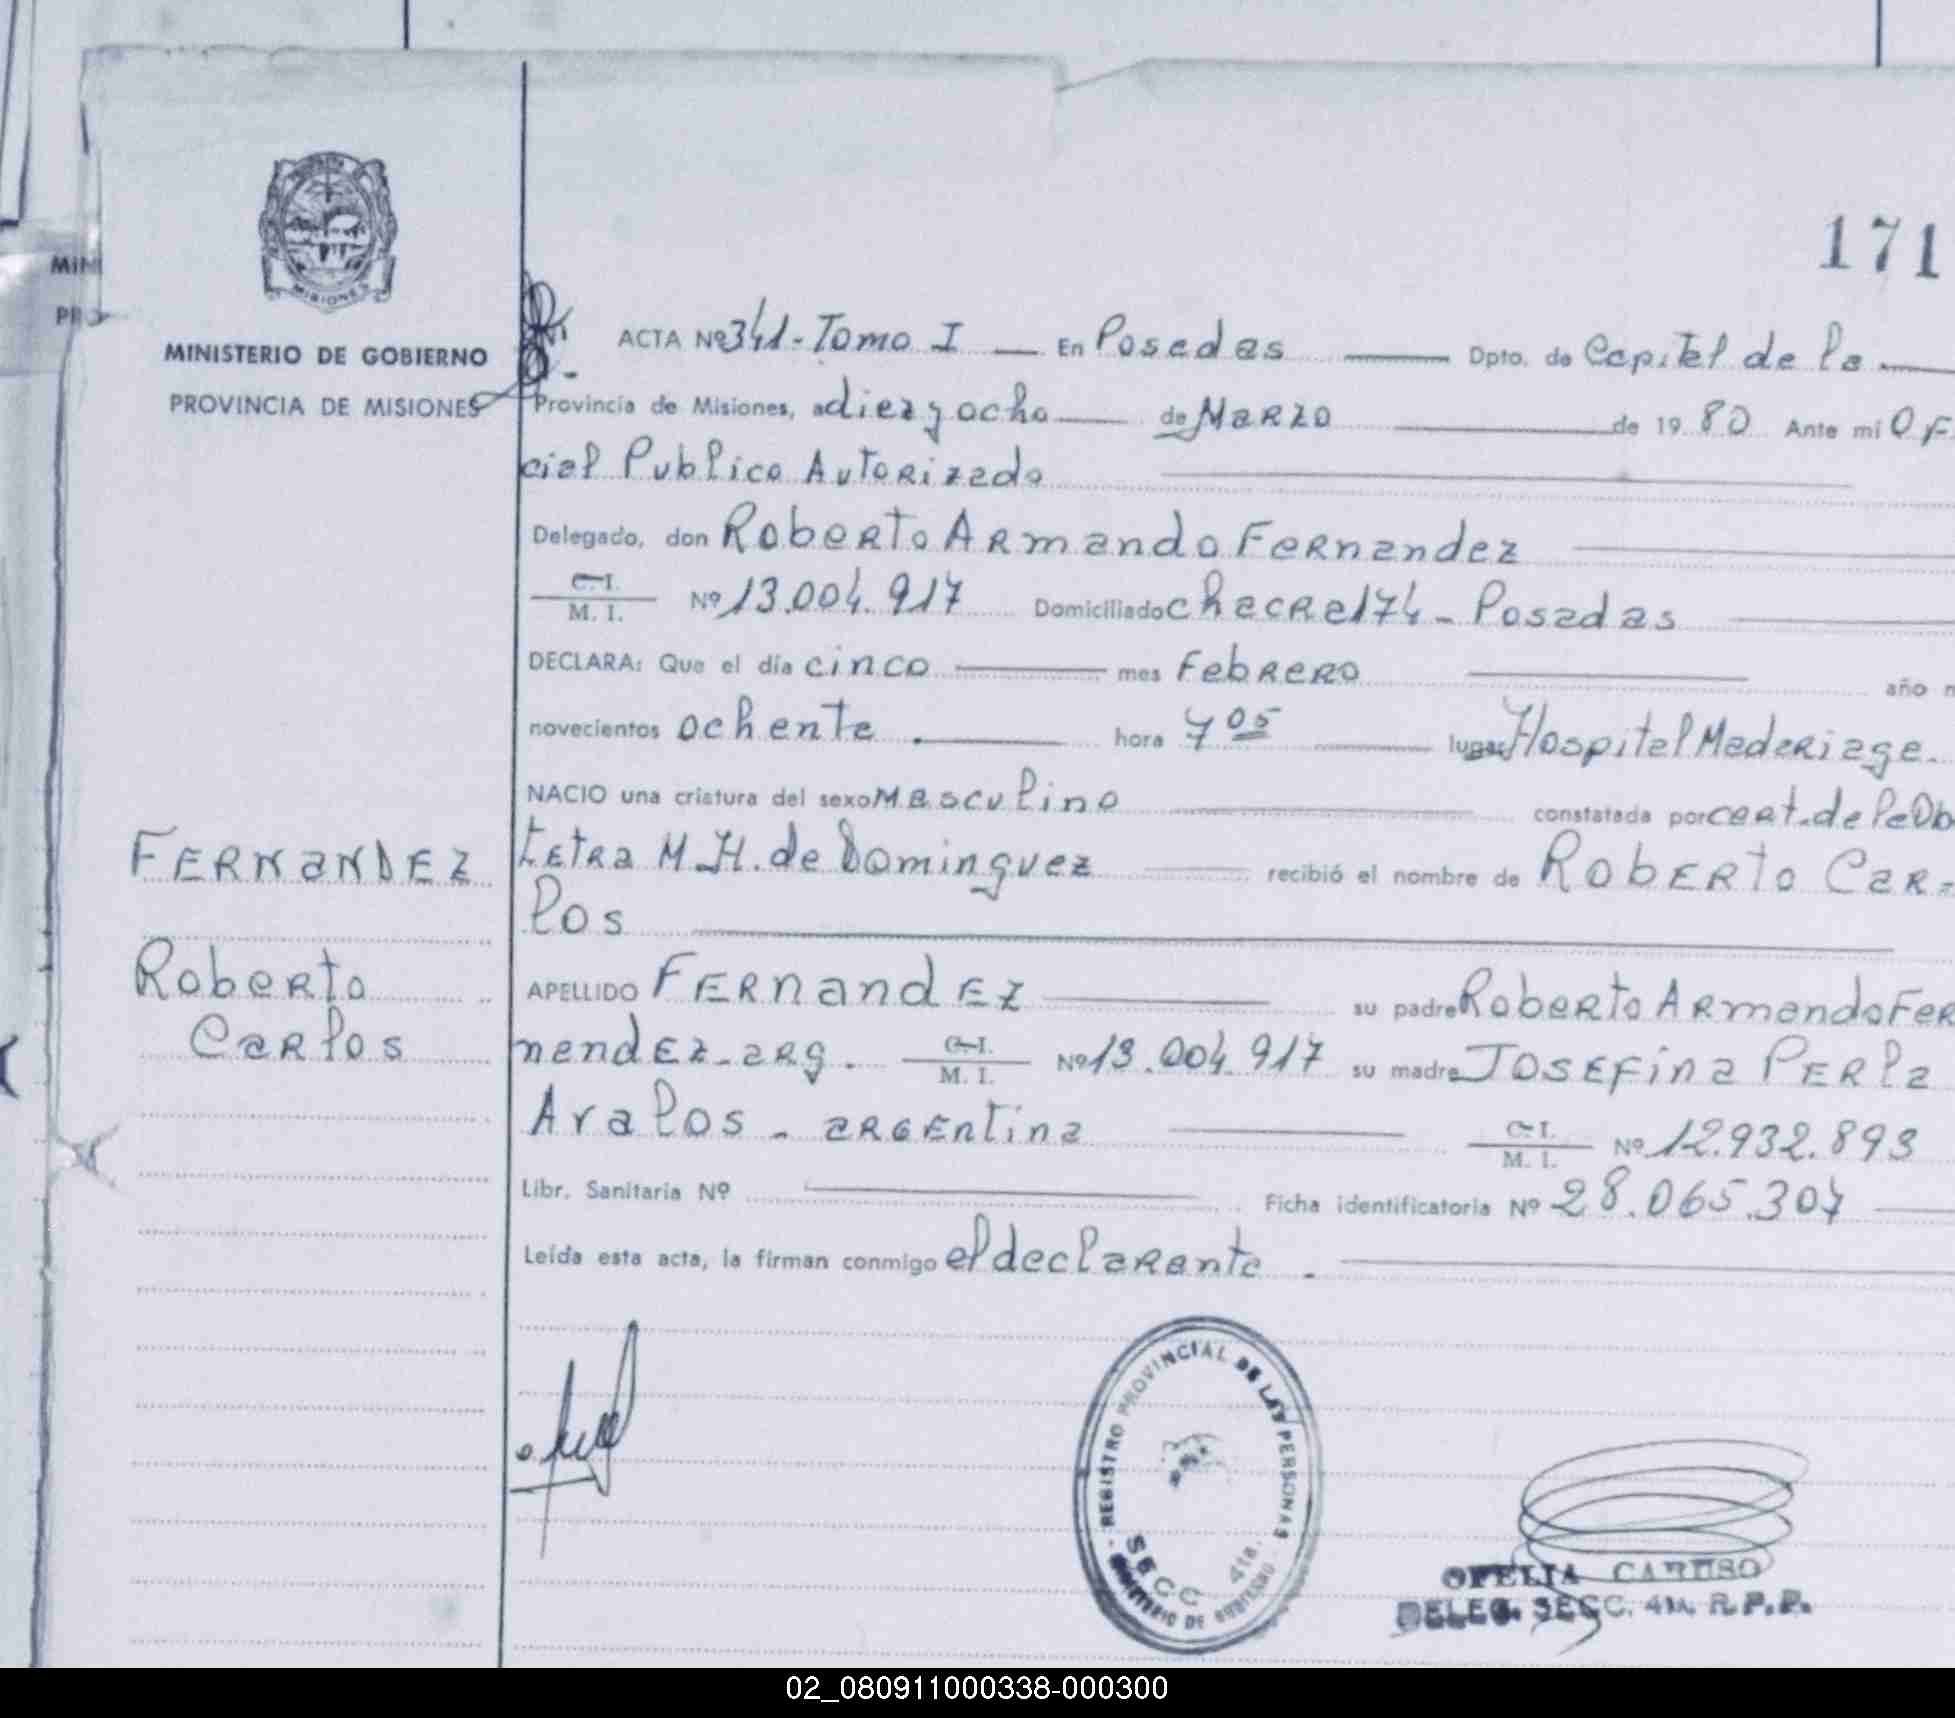 171
MINISTERIO DE GOBIERNO
PROVINCIA DE MISIONES
MISIONES
ACTA Nº 341-Tomo I — En Posadas — Dpto. de Capital de la —
Provincia de Misiones, a diez y ocho — de Marzo — de 1980 Ante mi Ofi
cial Publico Autorizado
Delegado, don Roberto Armando Fernandez
C.I. M.I. Nº 13.004.917 Domiciliado chacra 174 - Posadas
DECLARA: Que el día cinco — mes Febrero — año m
novecientos ochenta . — hora 7 05 — lugar Hospital Madariaga.
NACIO una criatura del sexo Masculino constatada por cert. de la Obs
tetra M.H. de Dominguez — recibió el nombre de Roberto Car=
los
FERNANDEZ
Roberto
Carlos
APELLIDO FERnandEz — su padre Roberto Armando Fer
nandEz - arg. C.I. M.I. Nº 13.004.917 su madre Josefina Perla
Avalos - argentina — C.I. M.I. Nº 12.932.893
Libr. Sanitaria Nº — Ficha identificatoria Nº 28.065.307 —
Leída esta acta, la firman conmigo el declarante . —
REGISTRO PROVINCIAL DE LAS PERSONAS
SECC 4ta.
MINISTERIO DE GOBIERNO
OFELIA CARUSO
DELEG. SECC. 4ta. R.P.P.
02_080911000338-000300